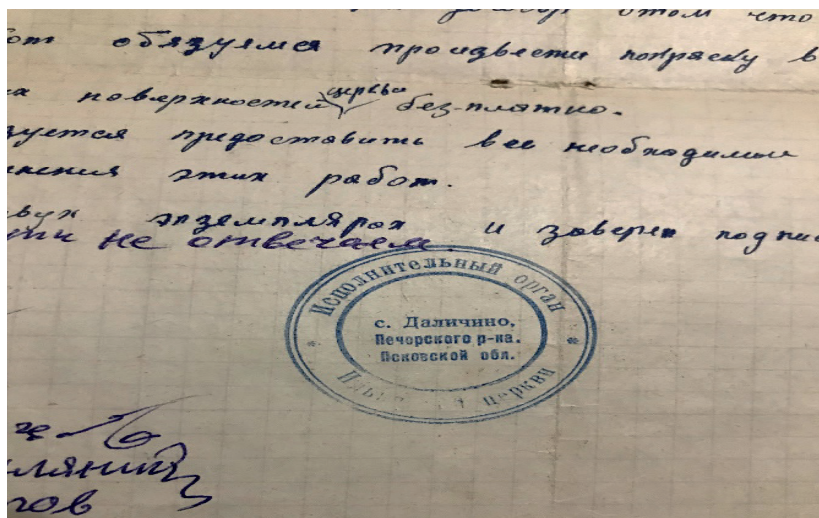 договор о том что
обязуемся произвести покраску в
поверхностей церкви без-платно.
предоставить все необходимые
этих работ.
экземплярах и заверен
не отвечаем.
Исполнительный орган
с. Даличино,
Печорского р-на.
Псковской обл.
церкви